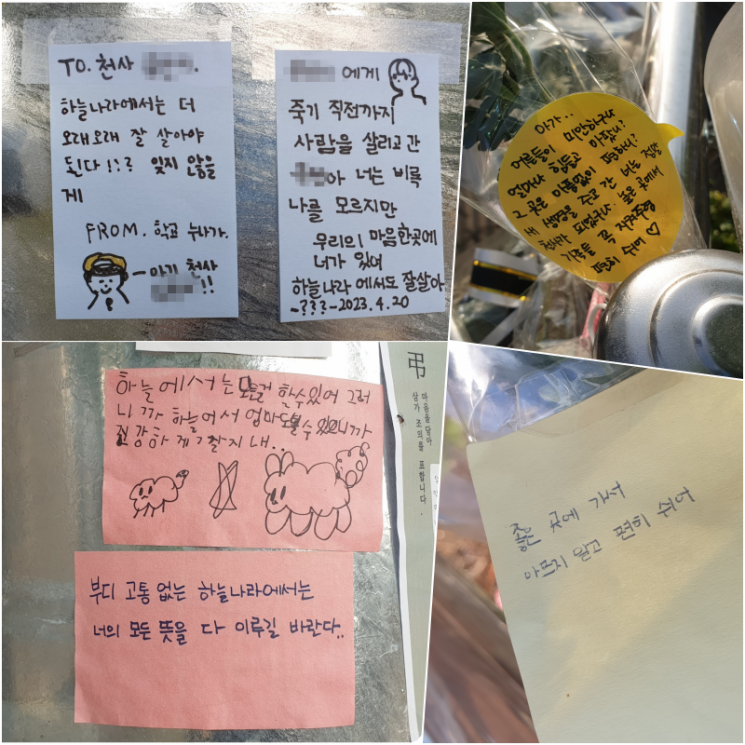 TO. 천사
하늘나라에서는 더
오래오래 잘 살아야
된다!!? 잊지 않을
게
FROM. 학교 누나가.
아기 천사
!!
에게
죽기 직전까지
사람을 살리고 간
아 너는 비록
나를 모르지만
우리의 마음한곳에
너가 있어
하늘나라에서도 잘살아
-???-2023.4.20
아가..
어른들이 미안하구나
얼마나 힘들고 아팠니?
그 곳은 아픔없이 편하니?
새 생명을 주고 간 너는 진정
천사가 되었구나. 높은 곳에서
가족들 꼭 지켜주렴
편히 쉬어 ♡
하늘에서는 모든걸 할수있어 그러
니까 하늘에서 엄마도볼수있으니까
건강하게 잘지내..
부디 고통 없는 하늘나라에서는
너의 모든 뜻을 다 이루길 바란다..
弔
마음을담아
삼가 조의를 표합니다.
좋은 곳에 가서
아프지 말고 편히 쉬어